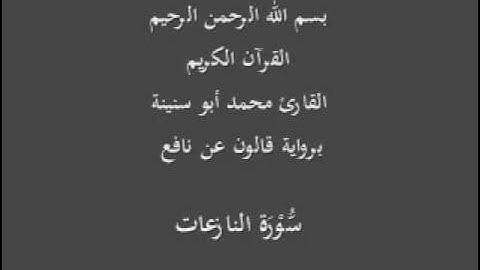 بسم الله الرحمن الرحيم
القرآن الكريم
القارئ محمد أبو سنينة
برواية قالون عن نافع
سُّوْرَة النازعات